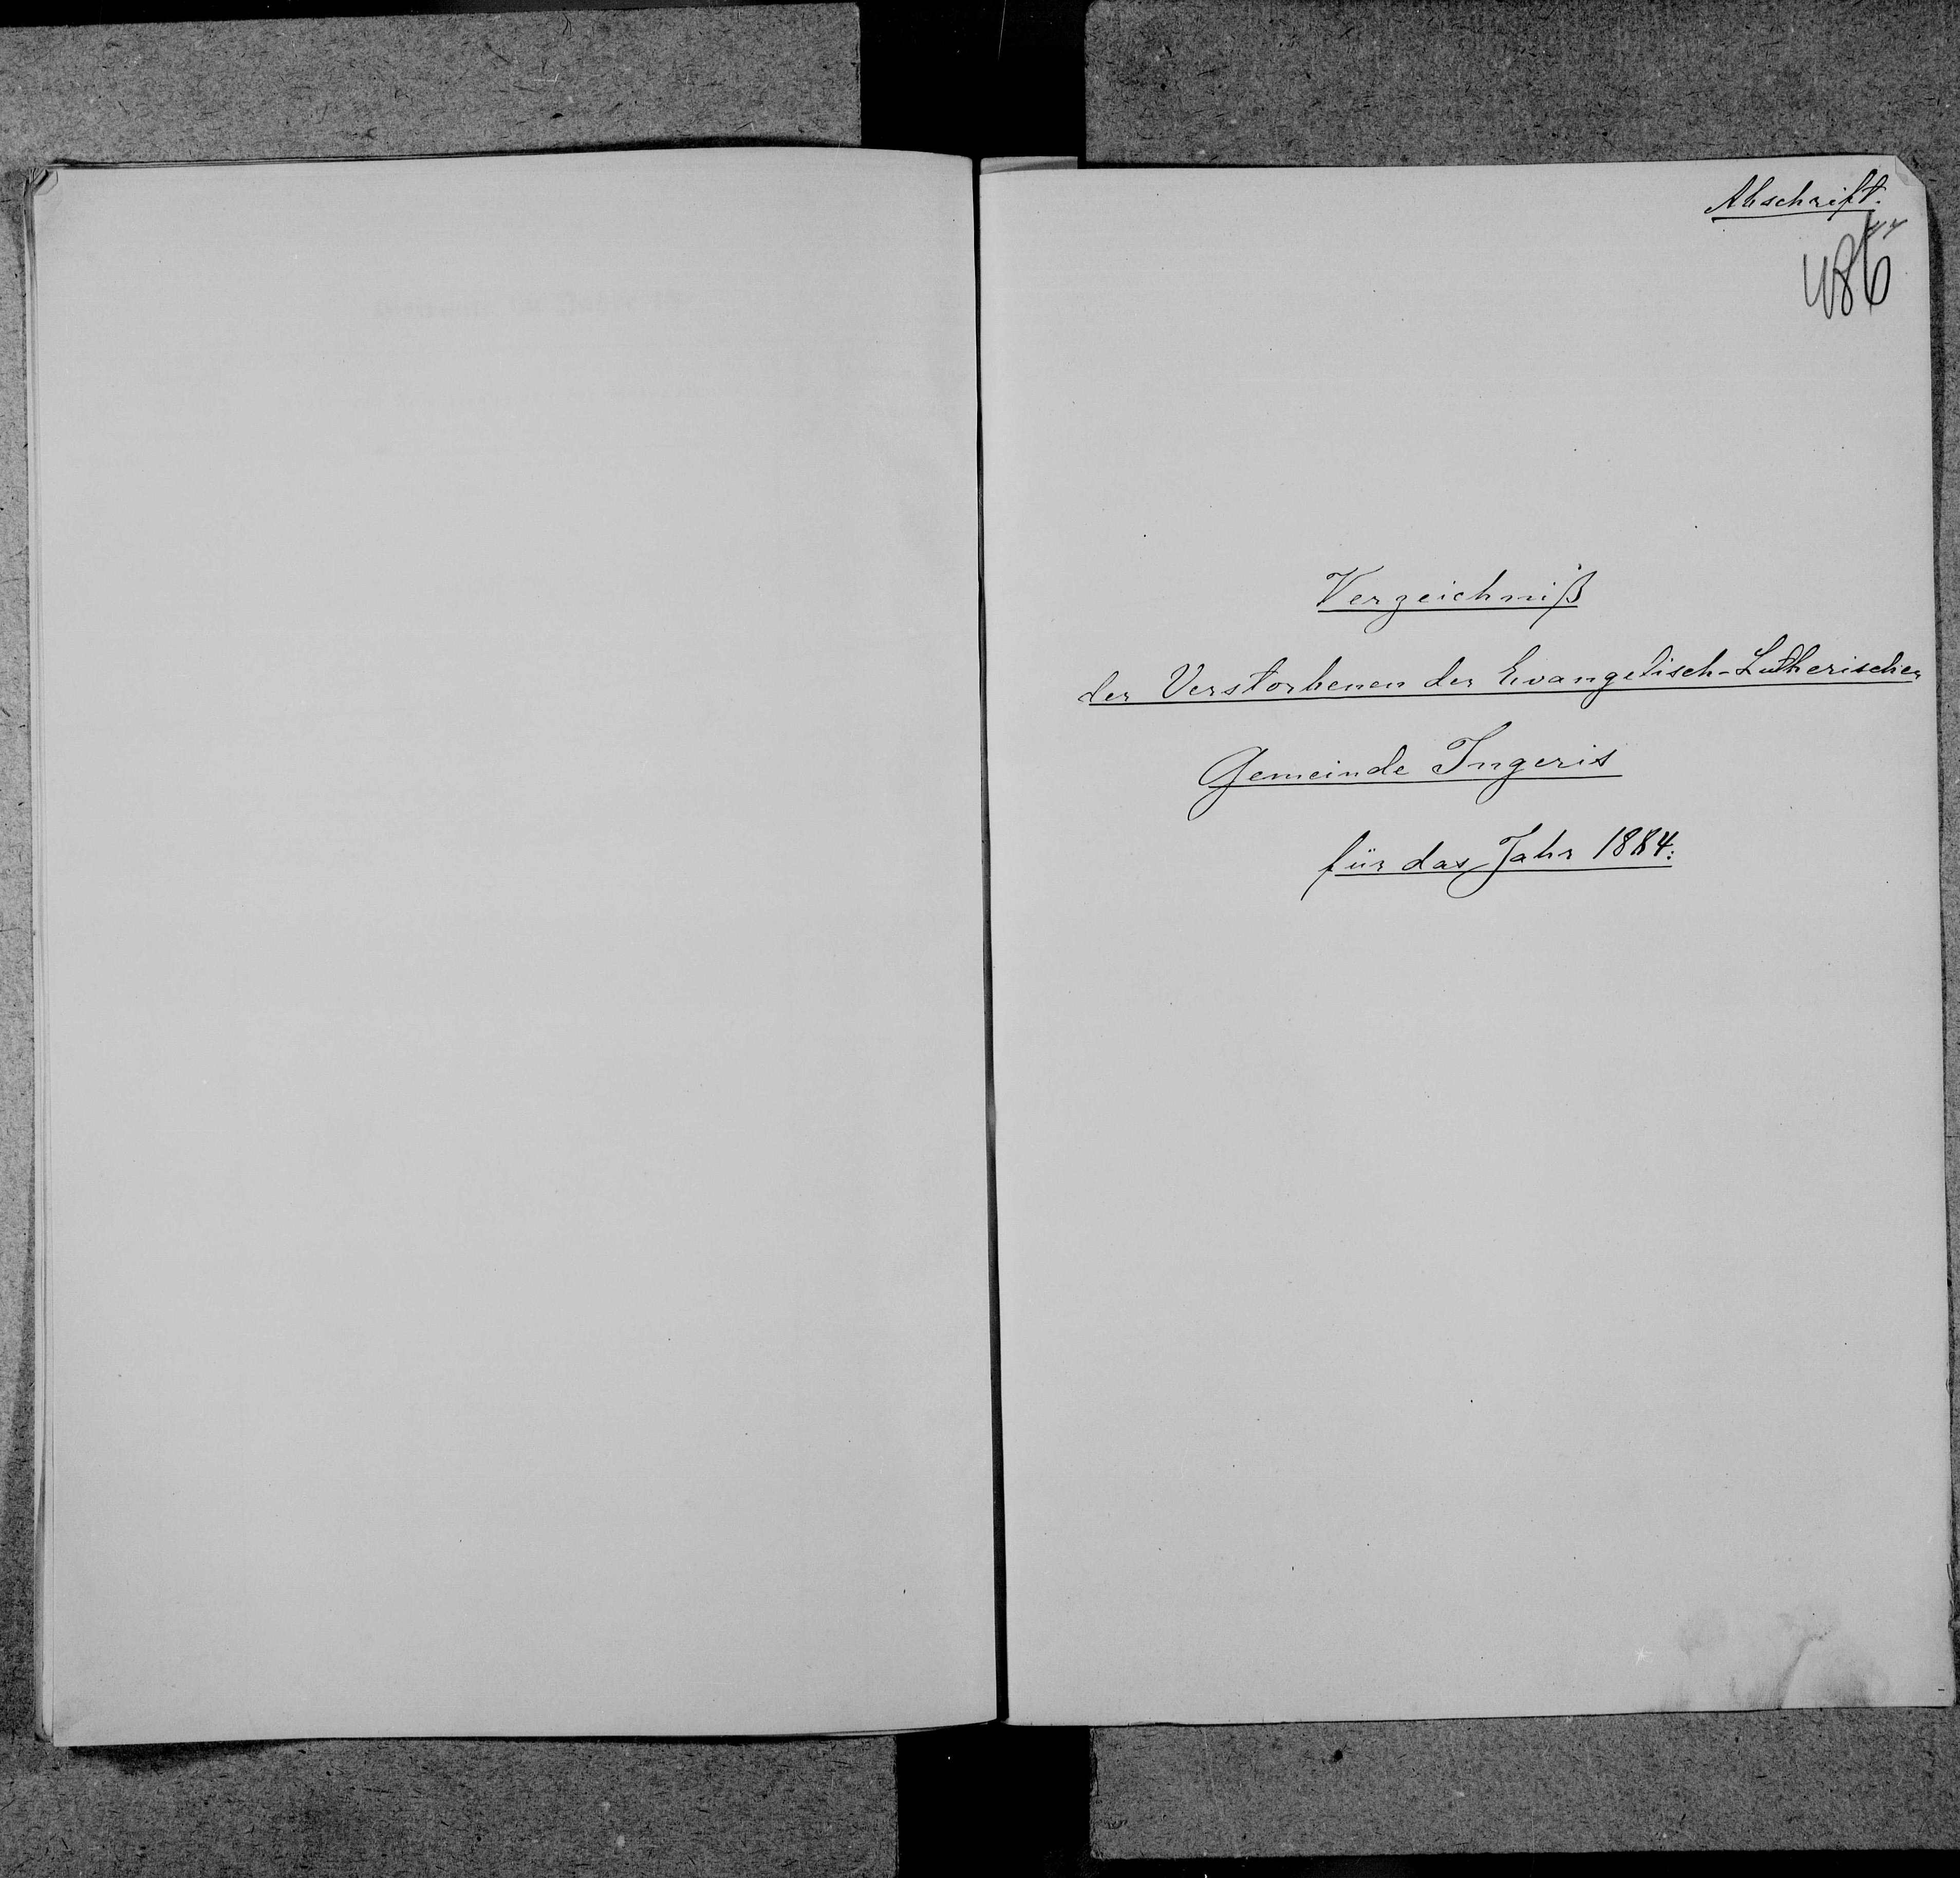 Abschrift.
486
Verzeichniß
der Verstorbenen der Evangelisch-Lutherischen
Gemeinde Ingeris
für das Jahr 1884: